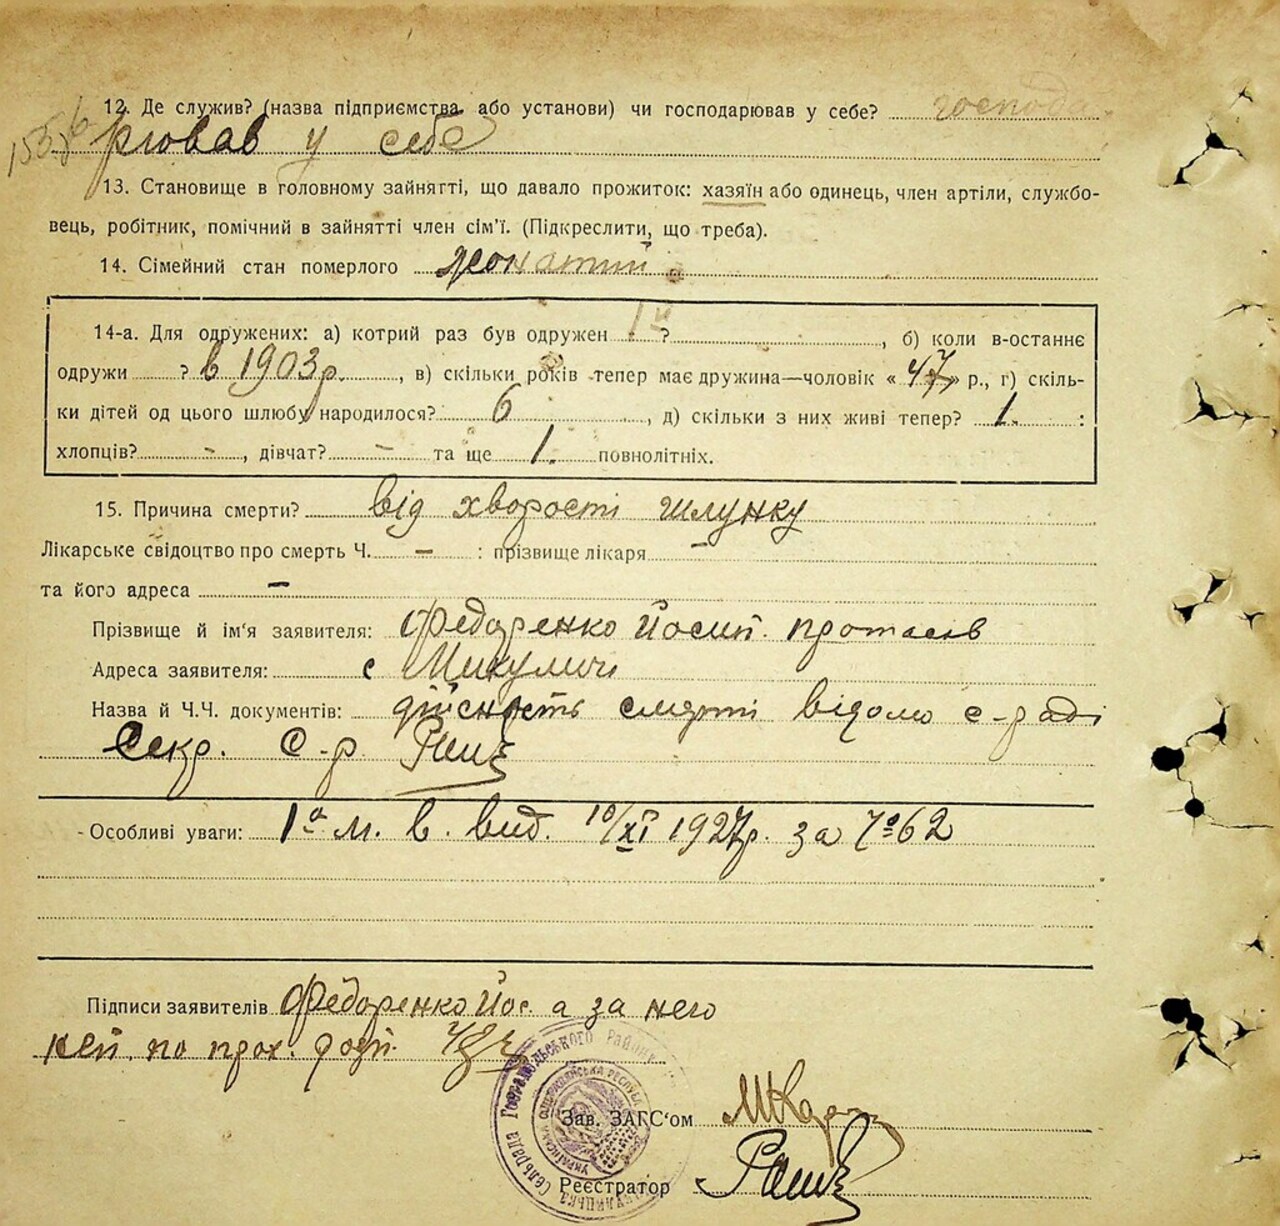 12. Де служив? (назва підприємства або установи) чи господарював у себе? господа
рював у себе
13. Становище в головному зайнятті, що давало прожиток: хазяїн або одинець, член артіли, службо-
вець, робітник, помічний в зайнятті член сім'ї. (Підкреслити, що треба).
14. Сімейний стан померлого жонатий
14-а. Для одружених: а) котрий раз був одружен 1й ?, б) коли в-останнє
одружи ? в 1903 р., в) скільки років тепер має дружина—чоловік « 47 » р., г) скіль-
ки дітей од цього шлюбу народилося? 6, д) скільки з них живі тепер? 1. :
хлопців? -, дівчат? - та ще 1. повнолітніх.
15. Причина смерти? від хворости шлунку
Лікарське свідоцтво про смерть Ч. — : прізвище лікаря —
та його адреса —
Прізвище й ім'я заявителя: Федоренко Йосип. протасів
Адреса заявителя: с Микуличі
Назва й Ч.Ч. документів: дійсність смерті відомо с-раді
Секр. С-р.
- Особливі уваги: 1а м. в. вид. 10/XI 1927р. за № 62
Підписи заявителів Федоренко Йос. а за него
по
Зав. ЗАГС'ом
Реєстратор